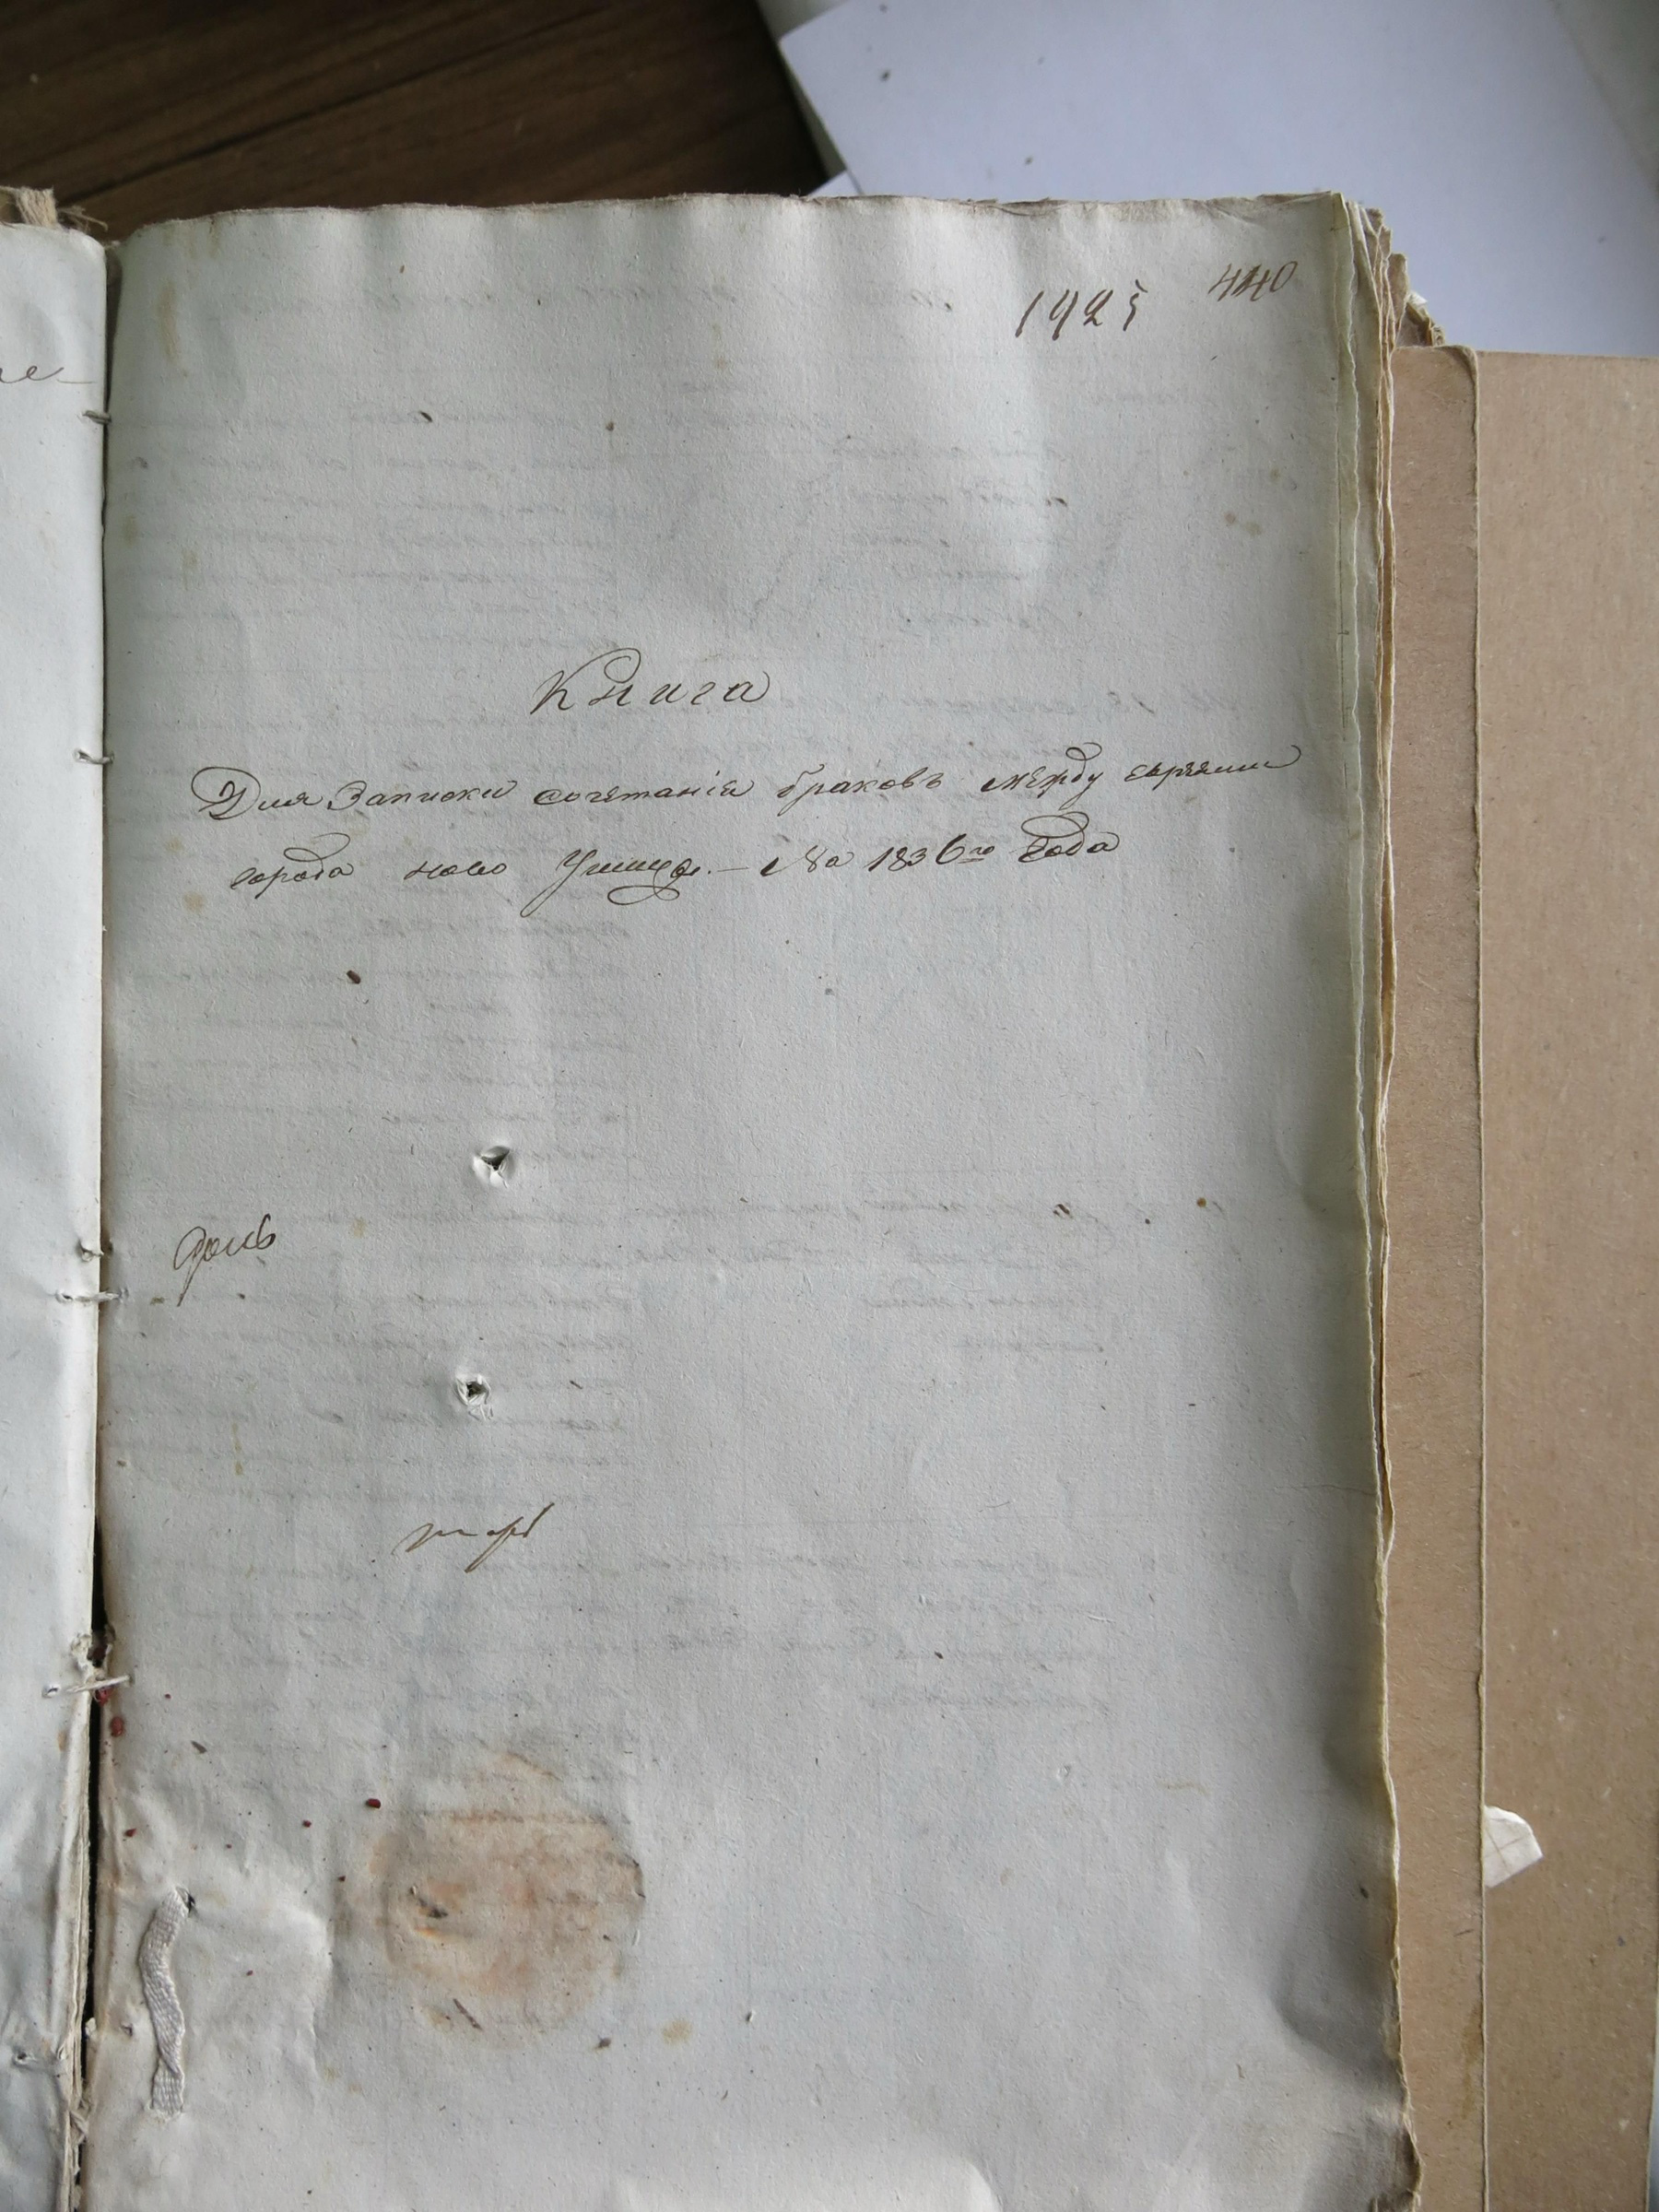 1925 440
Книга
Для Записки сочетанія браковъ между евреями
города ново Ушицы. — На 1836го Года